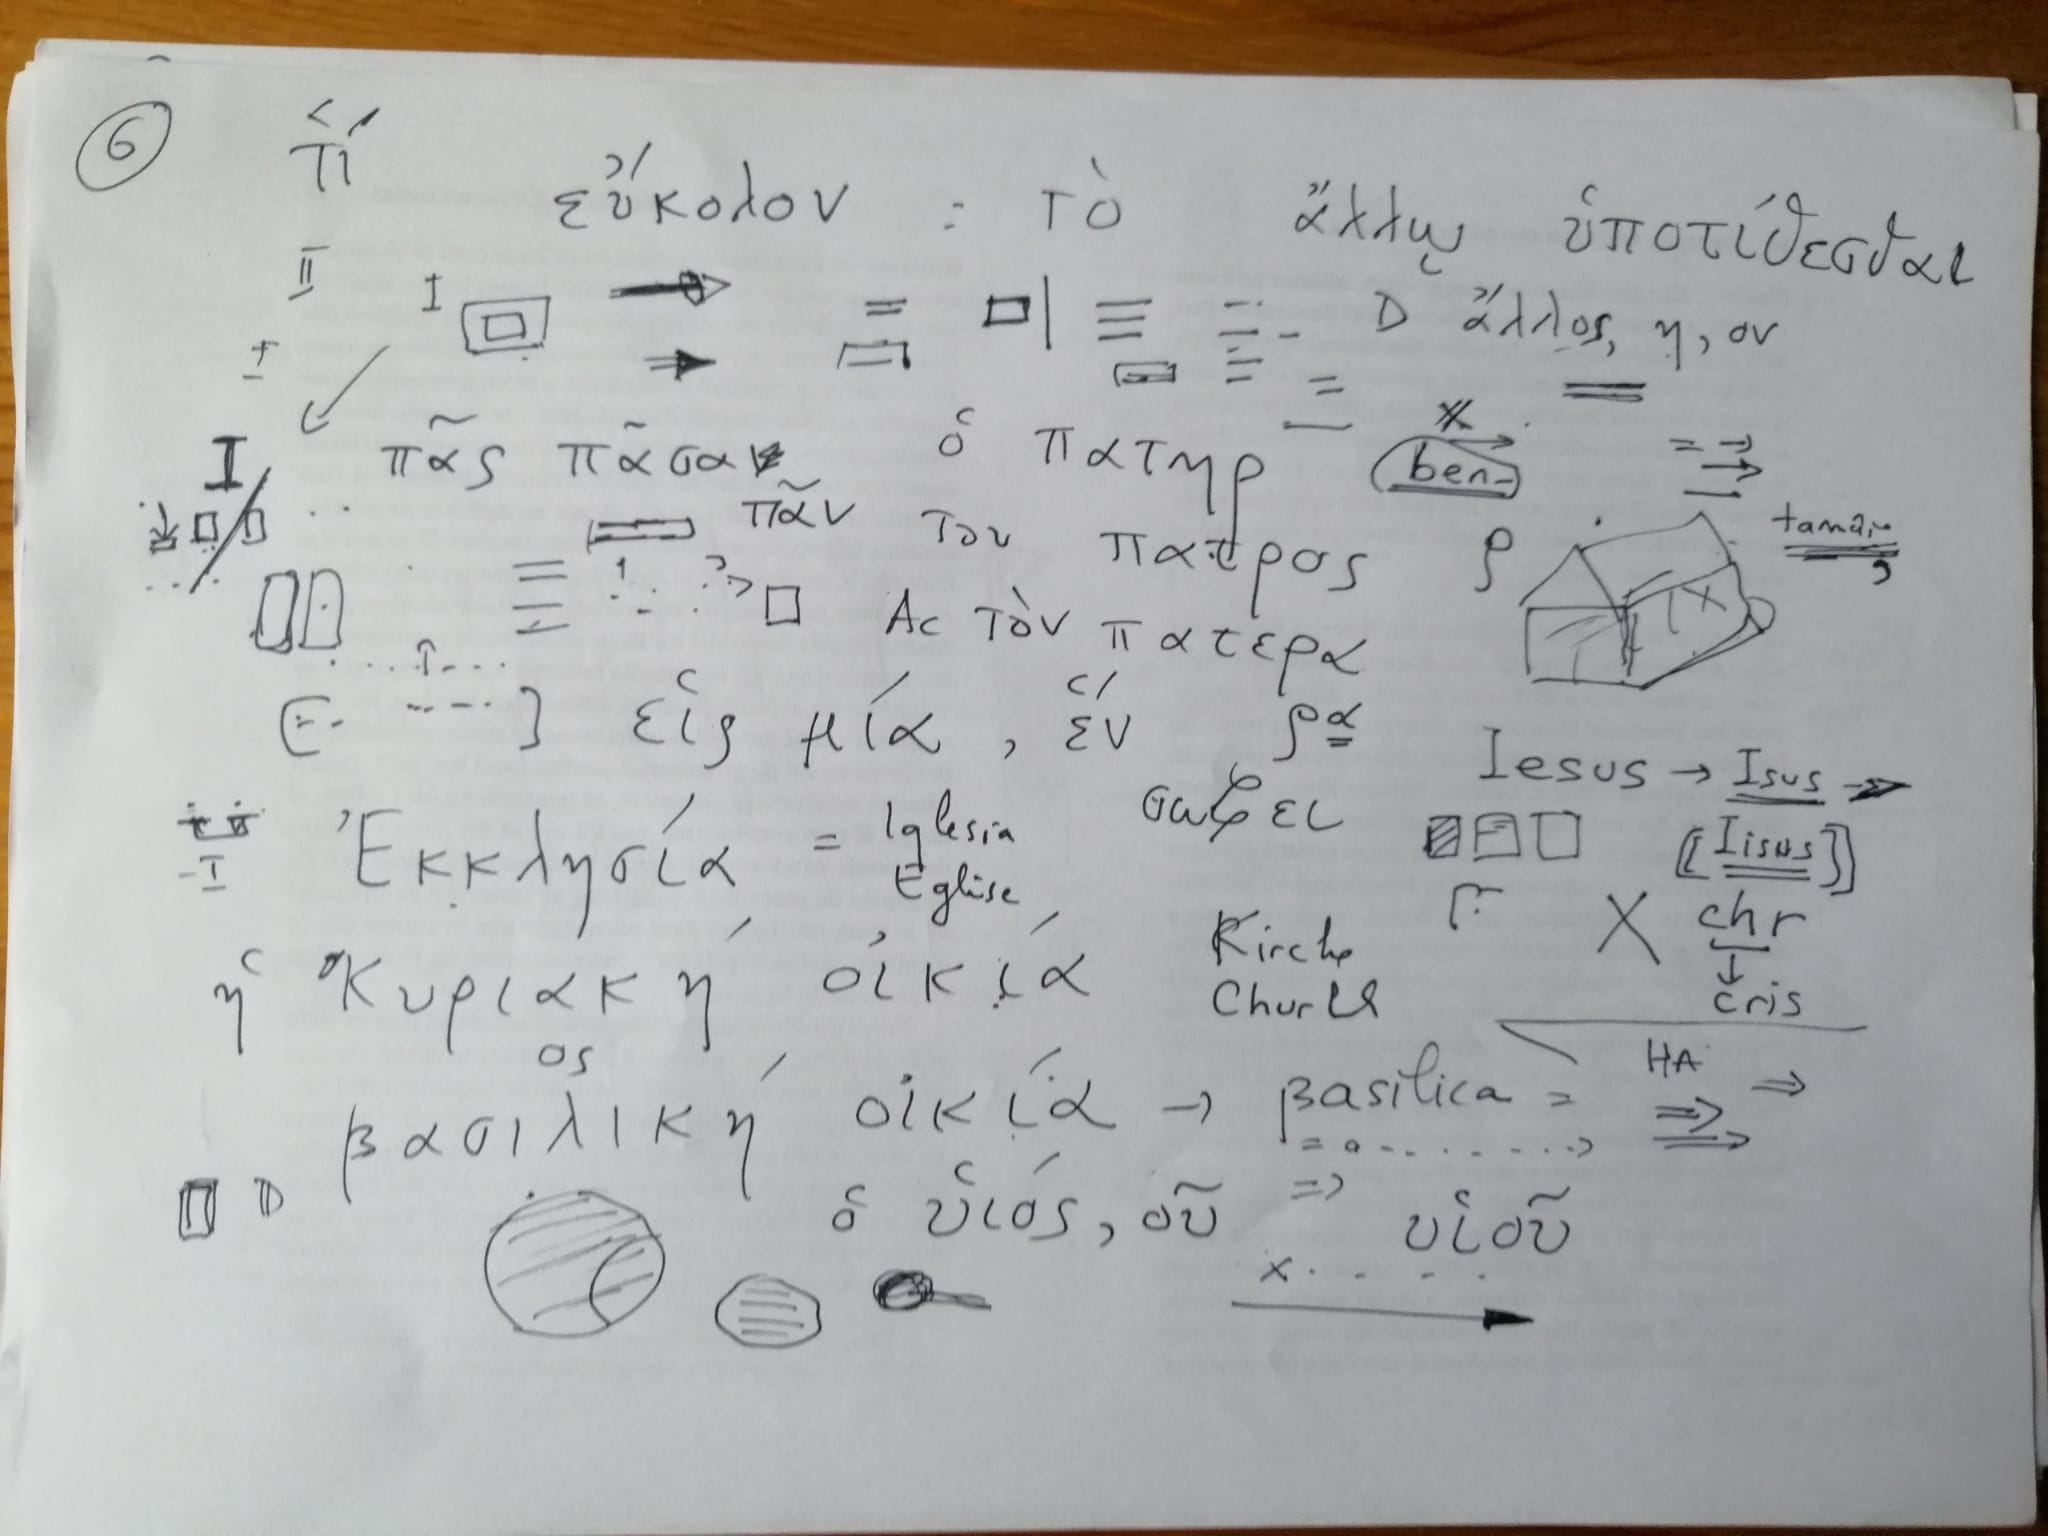 6
Τί εὔκολον : τὸ ἄλλῳ ὑποτίθεσθαι
II I = D ἄλλος, η, ον
I πᾶς πᾶσα ὁ πατηρ ben-
πᾶν του πατρος ρ
Ac τὸν πατερα
εἷς μία, ἕν ρα
Iesus → Isus
-I Ἐκκλησία = Iglesia
Eglise
[Iisus]
X chr
ἡ Κυριακή οἰκία Kirche
Church
cris
ος
HA
βασιλική οἰκία → βasilica =
D ὁ ὑιός, οῦ ⇒ υἱοῦ
x